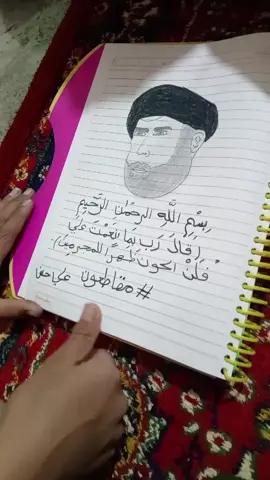 بِسْمِ اللَّهِ الرَّحْمَٰنِ الرَّحِيمِ
(قَالَ رَبِّ بِمَا أَنْعَمْتَ عَلَيَّ
فَلَنْ أَكُونَ ظَهِيرًا لِلْمُجْرِمِينَ)
#مقاطعون على حق